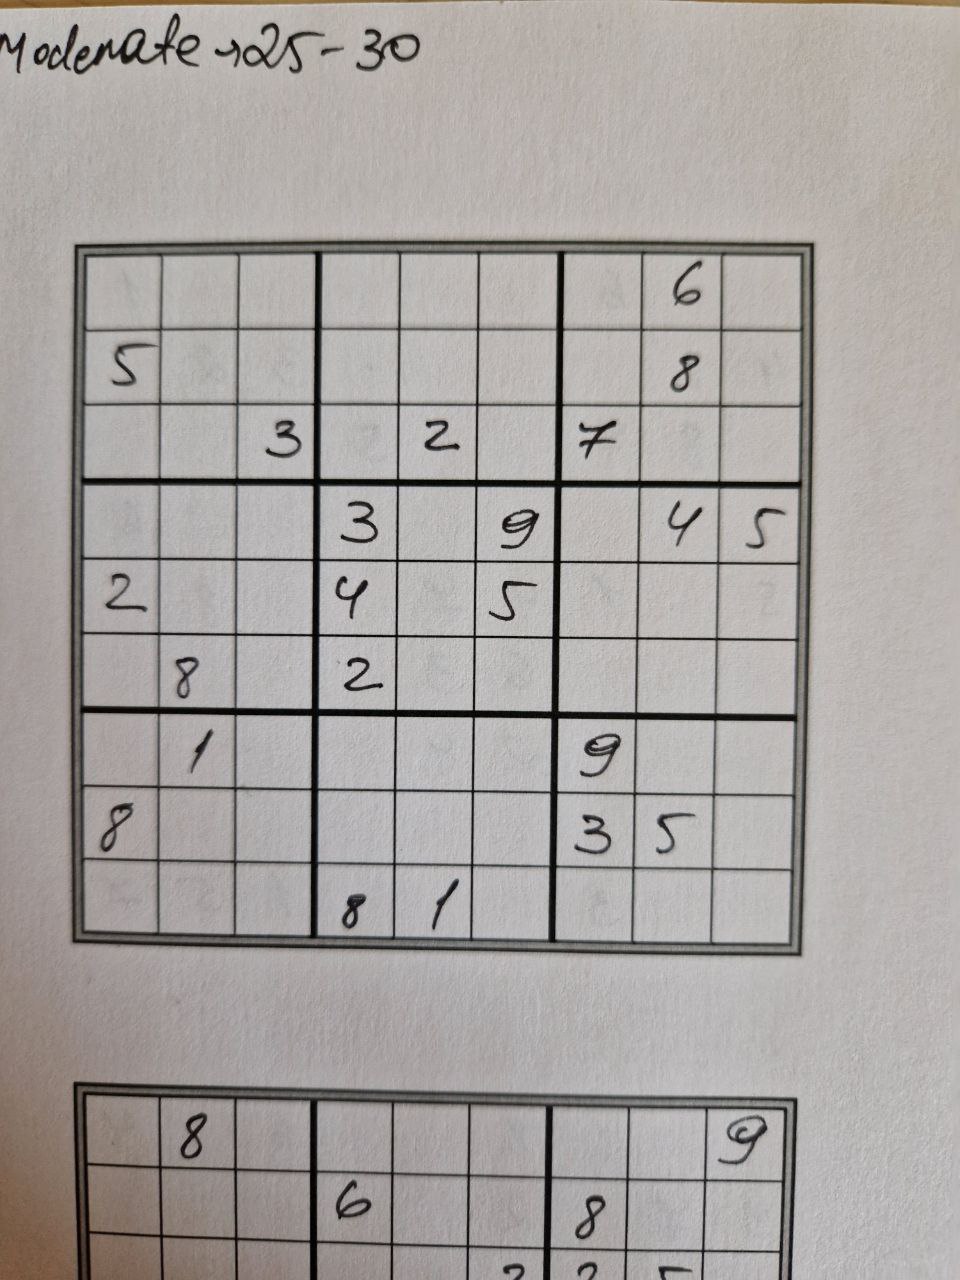 Moderate → 25-30
6
5 8
3 2 7
3 9 4 5
2 4 5
8 2
1 9
8 3 5
8 1
8 9
6 8